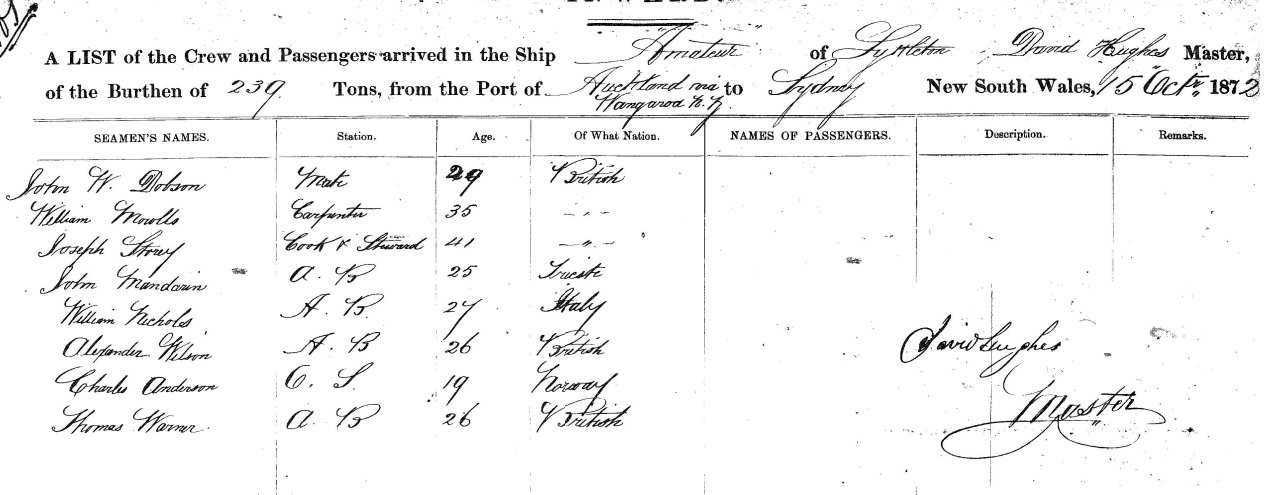 A LIST of the Crew and Passengers arrived in the Ship Amateur of Lyttleton David Hughes Master,
of the Burthen of 239 Tons, from the Port of Auckland via Wangaroa N.Z. to Sydney New South Wales, 15 Octr. 1872
SEAMEN'S NAMES. Station. Age. Of What Nation. NAMES OF PASSENGERS. Description. Remarks.
John W. Dobson Mate 29 British
William Mowlls Carpenter 35 - " -
Joseph Storey Cook & Steward 41 - " -
John Mandarin A. B 25 Trieste
William Nichols A. B. 27 Italy
Alexander Wilson A. B 26 British
Charles Anderson O. S. 19 Norway
Thomas Warner A B 26 British
David Hughes
Master